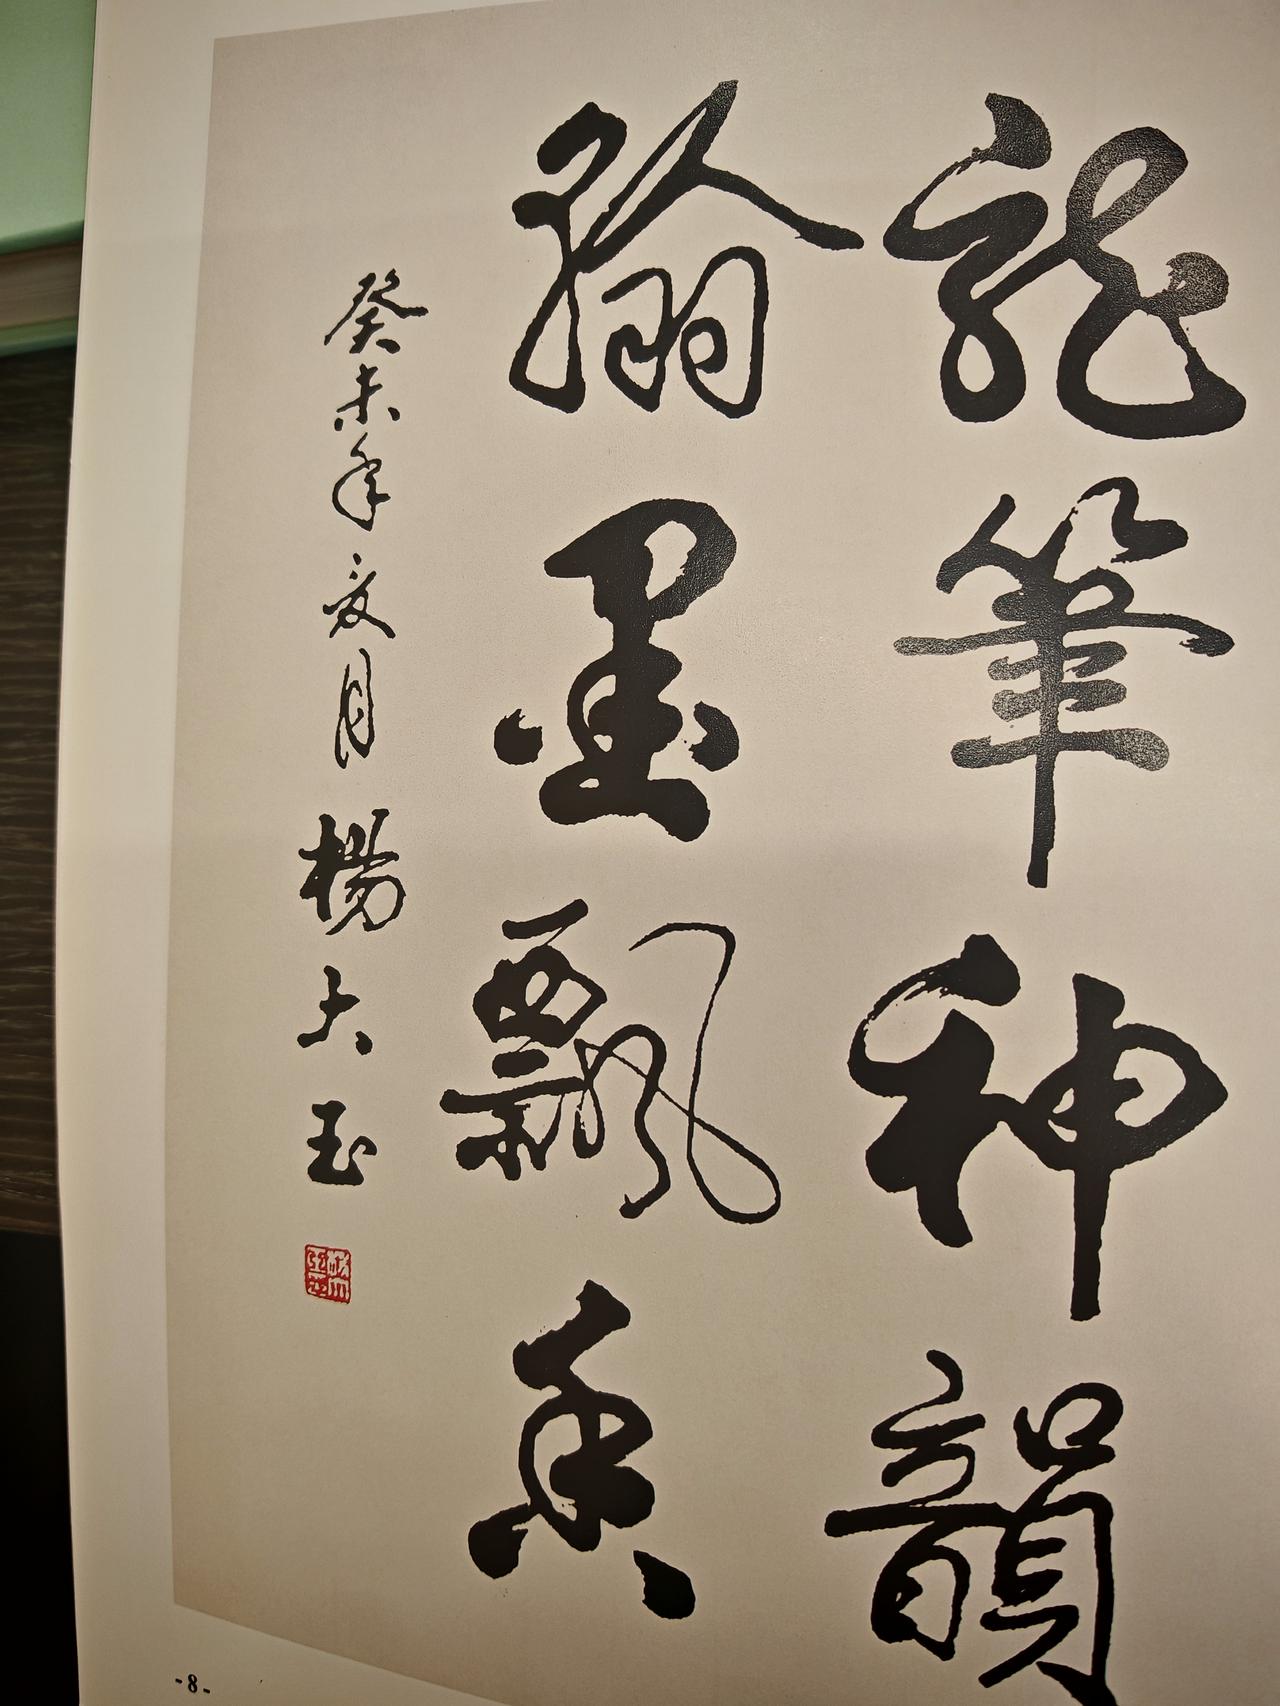 龍筆神韻
翰墨飄香
癸未年夏月 楊大玉
-8-